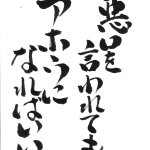 悪口を
言われても
アホウに
なればいい